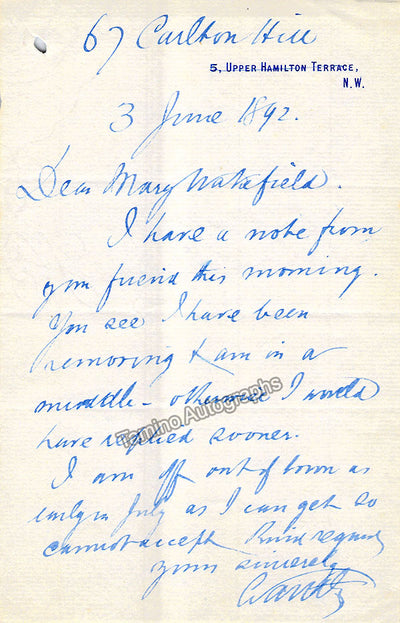 67 Carlton Hill
5, UPPER HAMILTON TERRACE,
N.W.
3 June 1892.
Dear Mary Wakefield.
I have a note from
your friend this morning.
You see I have been
removing & am in a
muddle - otherwise I would
have replied sooner.
Tamino Autographs
I am off out of town as
early in July as I can get so
cannot accept Kind regards
yours sincerely